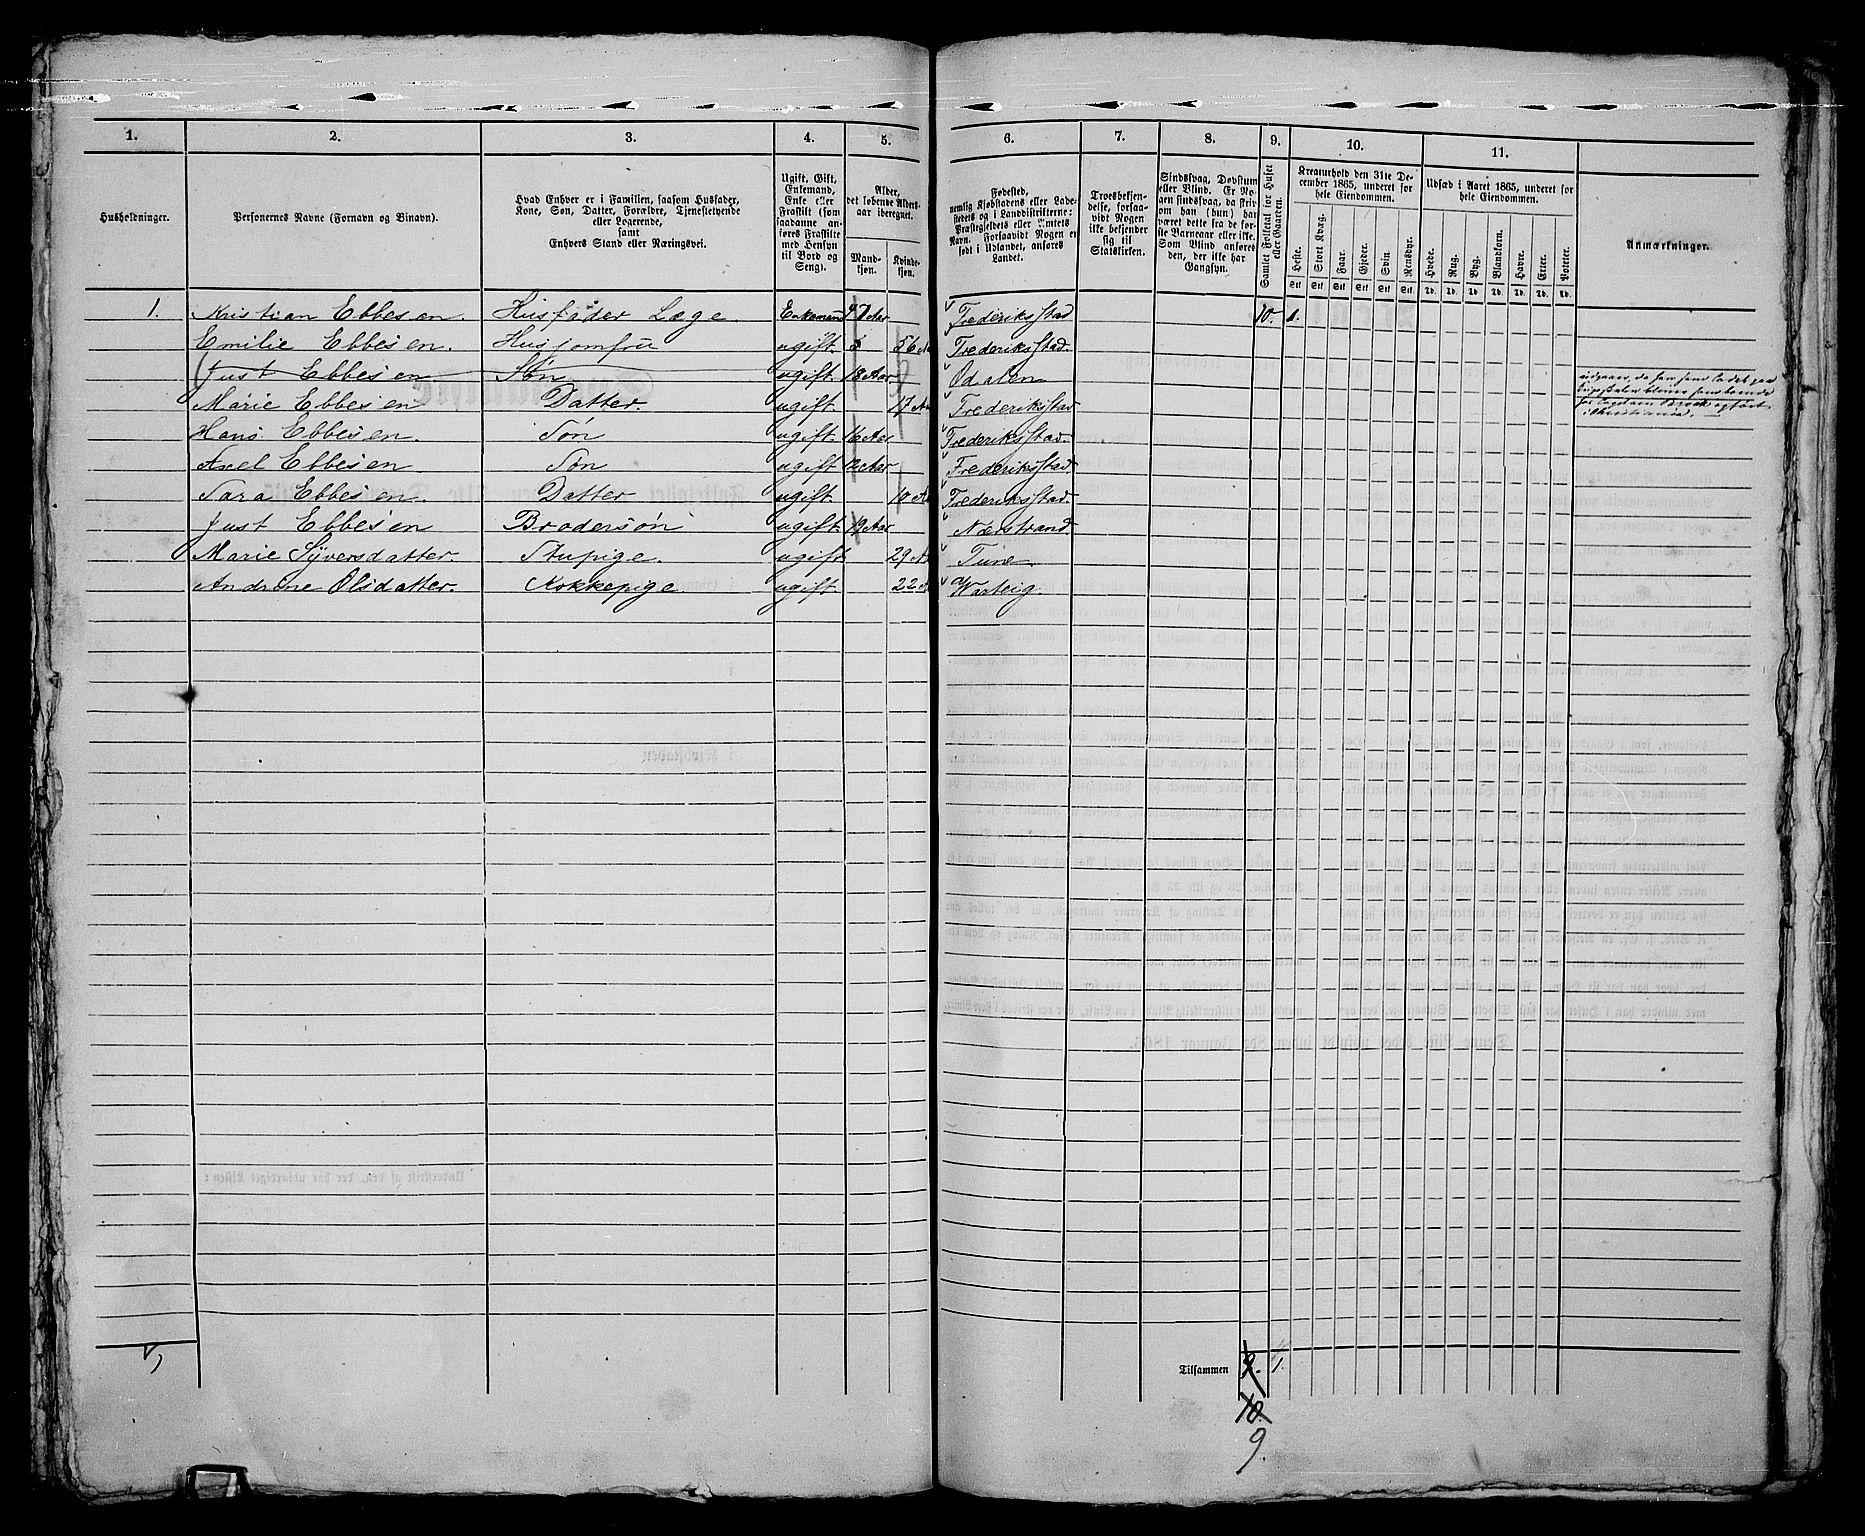 1. 2. 3. 4. 5. 6. 7. 8. 9. 10. 11.
Husholdninger.
Personernes Navne (Fornavn og Binavn).
Hvad Enhver er i Familien, saasom Husfader,
Kone, Søn, Datter, Forældre, Tjenestetyende
eller Logerende,
samt
Enhvers Stand eller Næringsvei.
Ugift, Gift,
Enkemand,
Enke eller
Fraskilt (som
saadanne an-
føres Fraskilte
med Hensyn
til Bord og
Seng).
Alder,
det løbende Alders-
aar iberegnet.
Mand-
kjøn.
Kvinde-
kjøn.
Fødested,
nemlig Kjøbstadens eller Lade-
stedets og i Landdistrikterne:
Præstegjeldets eller Amtets
Navn. Forsaavidt Nogen er
født i Udlandet, anføres
Landet.
Troesbekjen-
delse, forsaa-
vidt Nogen
ikke bekjender
sig til
Statskirken.
Sindssvag, Døvstum
eller Blind. Er No-
gen sindssvag, da skriv
om han (hun) har
været dette fra de før-
ste Barneaar eller ikke.
Som Blind anføres
den, der ikke har
Gangsyn.
Samlet Folketal for Huset
eller Gaarden.
Kreaturhold den 31te De-
cember 1865, underet for
hele Eiendommen.
Heste. Stort Kvæg. Faar. Gjeder. Svin. Rensdyr.
Stk Stk Stk Stk Stk Stk
Udsæd i Aaret 1865, underet for
hele Eiendommen.
Hvede. Rug. Byg. Blandkorn. Havre. Erter. Poteter.
Td. Td. Td. Td. Td. Td. Td.
Anmærkninger.
1. Kristian Ebbesen. Husfader Læge. Enkemand 47 Aar Frederiksstad 10. 1.
Emilie Ebbesen. Husjomfru ugift. 56 A Frederiksstad.
Just Ebbesen Søn ugift. 18 Aar Odalen
Marie Ebbesen Datter. ugift. 17 A Frederiksstad
Hans Ebbesen. Søn ugift. 16 Aar Frederiksstad.
Axel Ebbesen Søn ugift 12 Aar Frederiksstad
Sara Ebbesen. Datter ugift. 10 A Frederiksstad.
Just Ebbesen Brodersøn ugift 19 Aar Nærstrand
Marie Syversdatter. Stupige. ugift 29 A Tune
Andrine Olsdatter. Kokkepige ugift. 22 A Warteig.
i Christiania.
Tilsammen 9. 1.
10.
9.